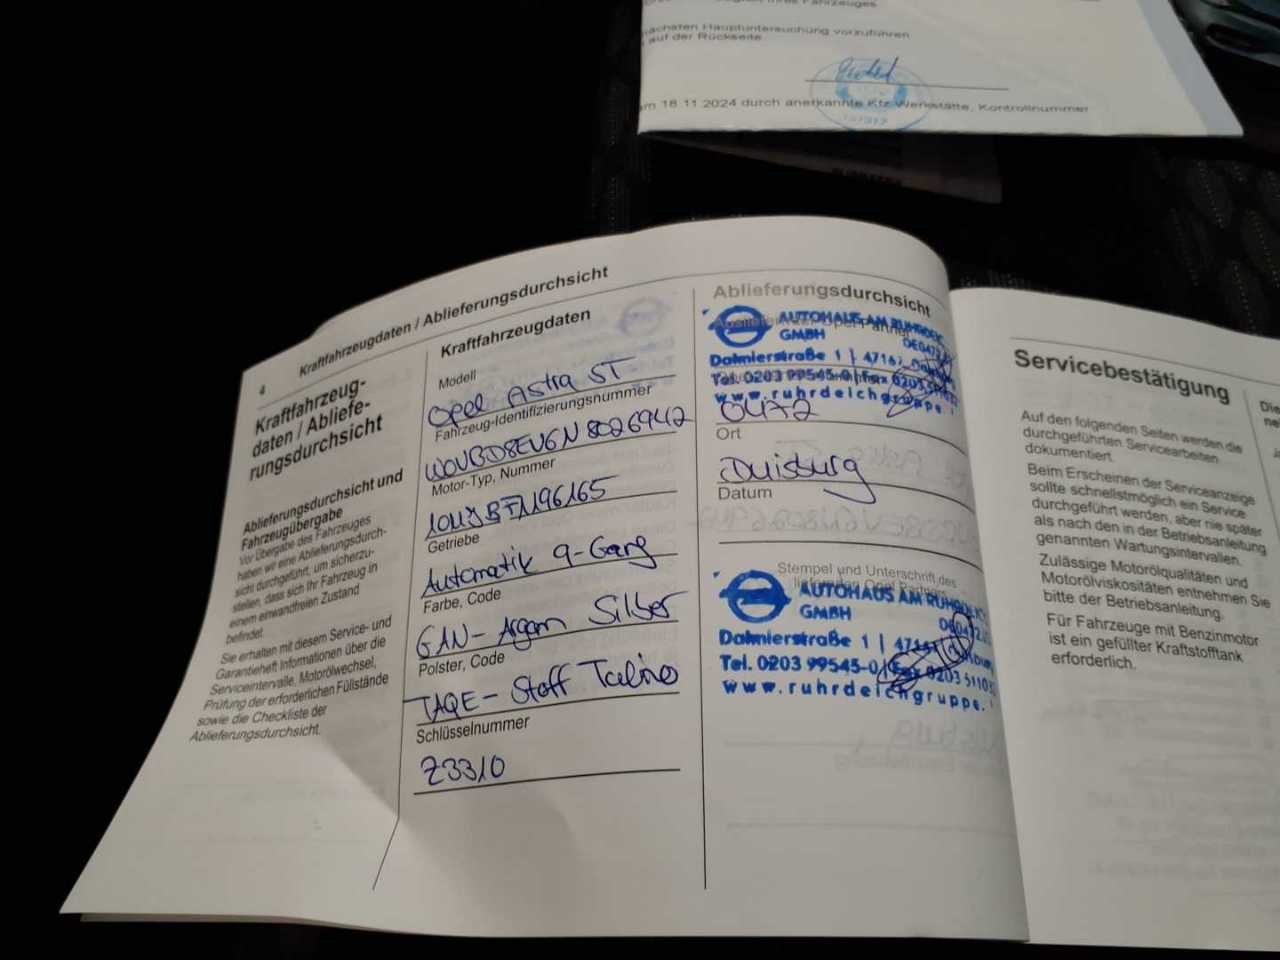 Ihres Fahrzeuges
nächsten Hauptuntersuchung vorzuführen
auf der Rückseite
am 18.11.2024 durch anerkannte Kfz Werkstätte, Kontrollnummer
4 Kraftfahrzeugdaten / Ablieferungsdurchsicht
Kraftfahrzeug-
daten / Abliefe-
rungsdurchsicht
Ablieferungsdurchsicht und
Fahrzeugübergabe
Vor Übergabe des Fahrzeuges
haben wir eine Ablieferungsdurch-
sicht durchgeführt, um sicherzu-
stellen, dass sich Ihr Fahrzeug in
einem einwandfreien Zustand
befindet.
Sie erhalten mit diesem Service- und
Garantieheft Informationen über die
Serviceintervalle, Motorölwechsel,
Prüfung der erforderlichen Füllstände
sowie die Checkliste der
Ablieferungsdurchsicht.
Kraftfahrzeugdaten
Modell
Opel Astra ST
Fahrzeug-Identifizierungsnummer
W0VBD8EV6N8026942
Motor-Typ, Nummer
Getriebe
Automatik 9-Gang
Farbe, Code
GAN- Argon Silber
Polster, Code
TAQE- Stoff Talino
Schlüsselnummer
Z3310
Ablieferungsdurchsicht
AUTOHAUS AM RUHRDEICH
GMBH
Daimlerstraße 1 | 47167
Tel. 0203 99545-0 | Fax 0203
www.ruhrdeichgruppe.
0472
Ort
Duisburg
Datum
Stempel und Unterschrift des
liefernden Opel Partners
AUTOHAUS AM RUHRDEICH
GMBH
Daimlerstraße 1 | 47167
Tel. 0203 99545-0 | Fax 0203 5110
www.ruhrdeichgruppe.
Servicebestätigung
Auf den folgenden Seiten werden die
durchgeführten Servicearbeiten
dokumentiert.
Beim Erscheinen der Serviceanzeige
sollte schnellstmöglich ein Service
durchgeführt werden, aber nie später
als nach den in der Betriebsanleitung
genannten Wartungsintervallen.
Zulässige Motorölqualitäten und
Motorölviskositäten entnehmen Sie
bitte der Betriebsanleitung.
Für Fahrzeuge mit Benzinmotor
ist ein gefüllter Kraftstofftank
erforderlich.
Die